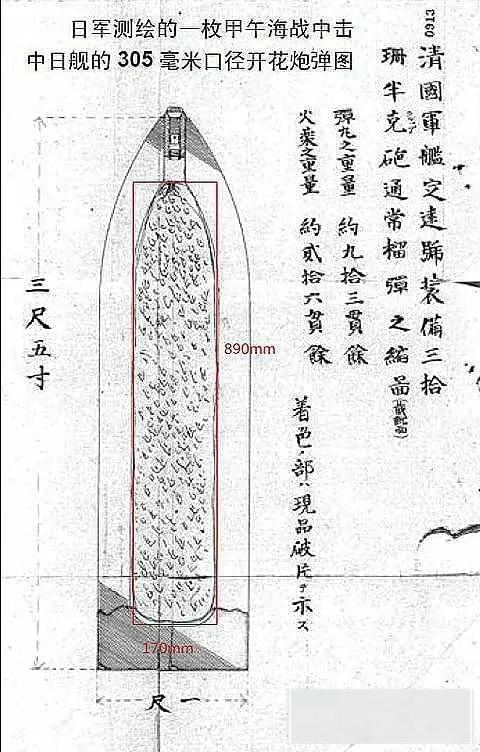 日军测绘的一枚甲午海战中击
中日舰的 305 毫米口径开花炮弹图
0913
清國軍艦定遠號裝備三拾
珊半克砲通常榴彈之縮圖
彈丸之重量 約九拾三貫餘
火藥之重量 約貳拾六貫餘
着色ノ部ハ現品破片ヲ示ス
三尺五寸
890mm
170mm
一尺